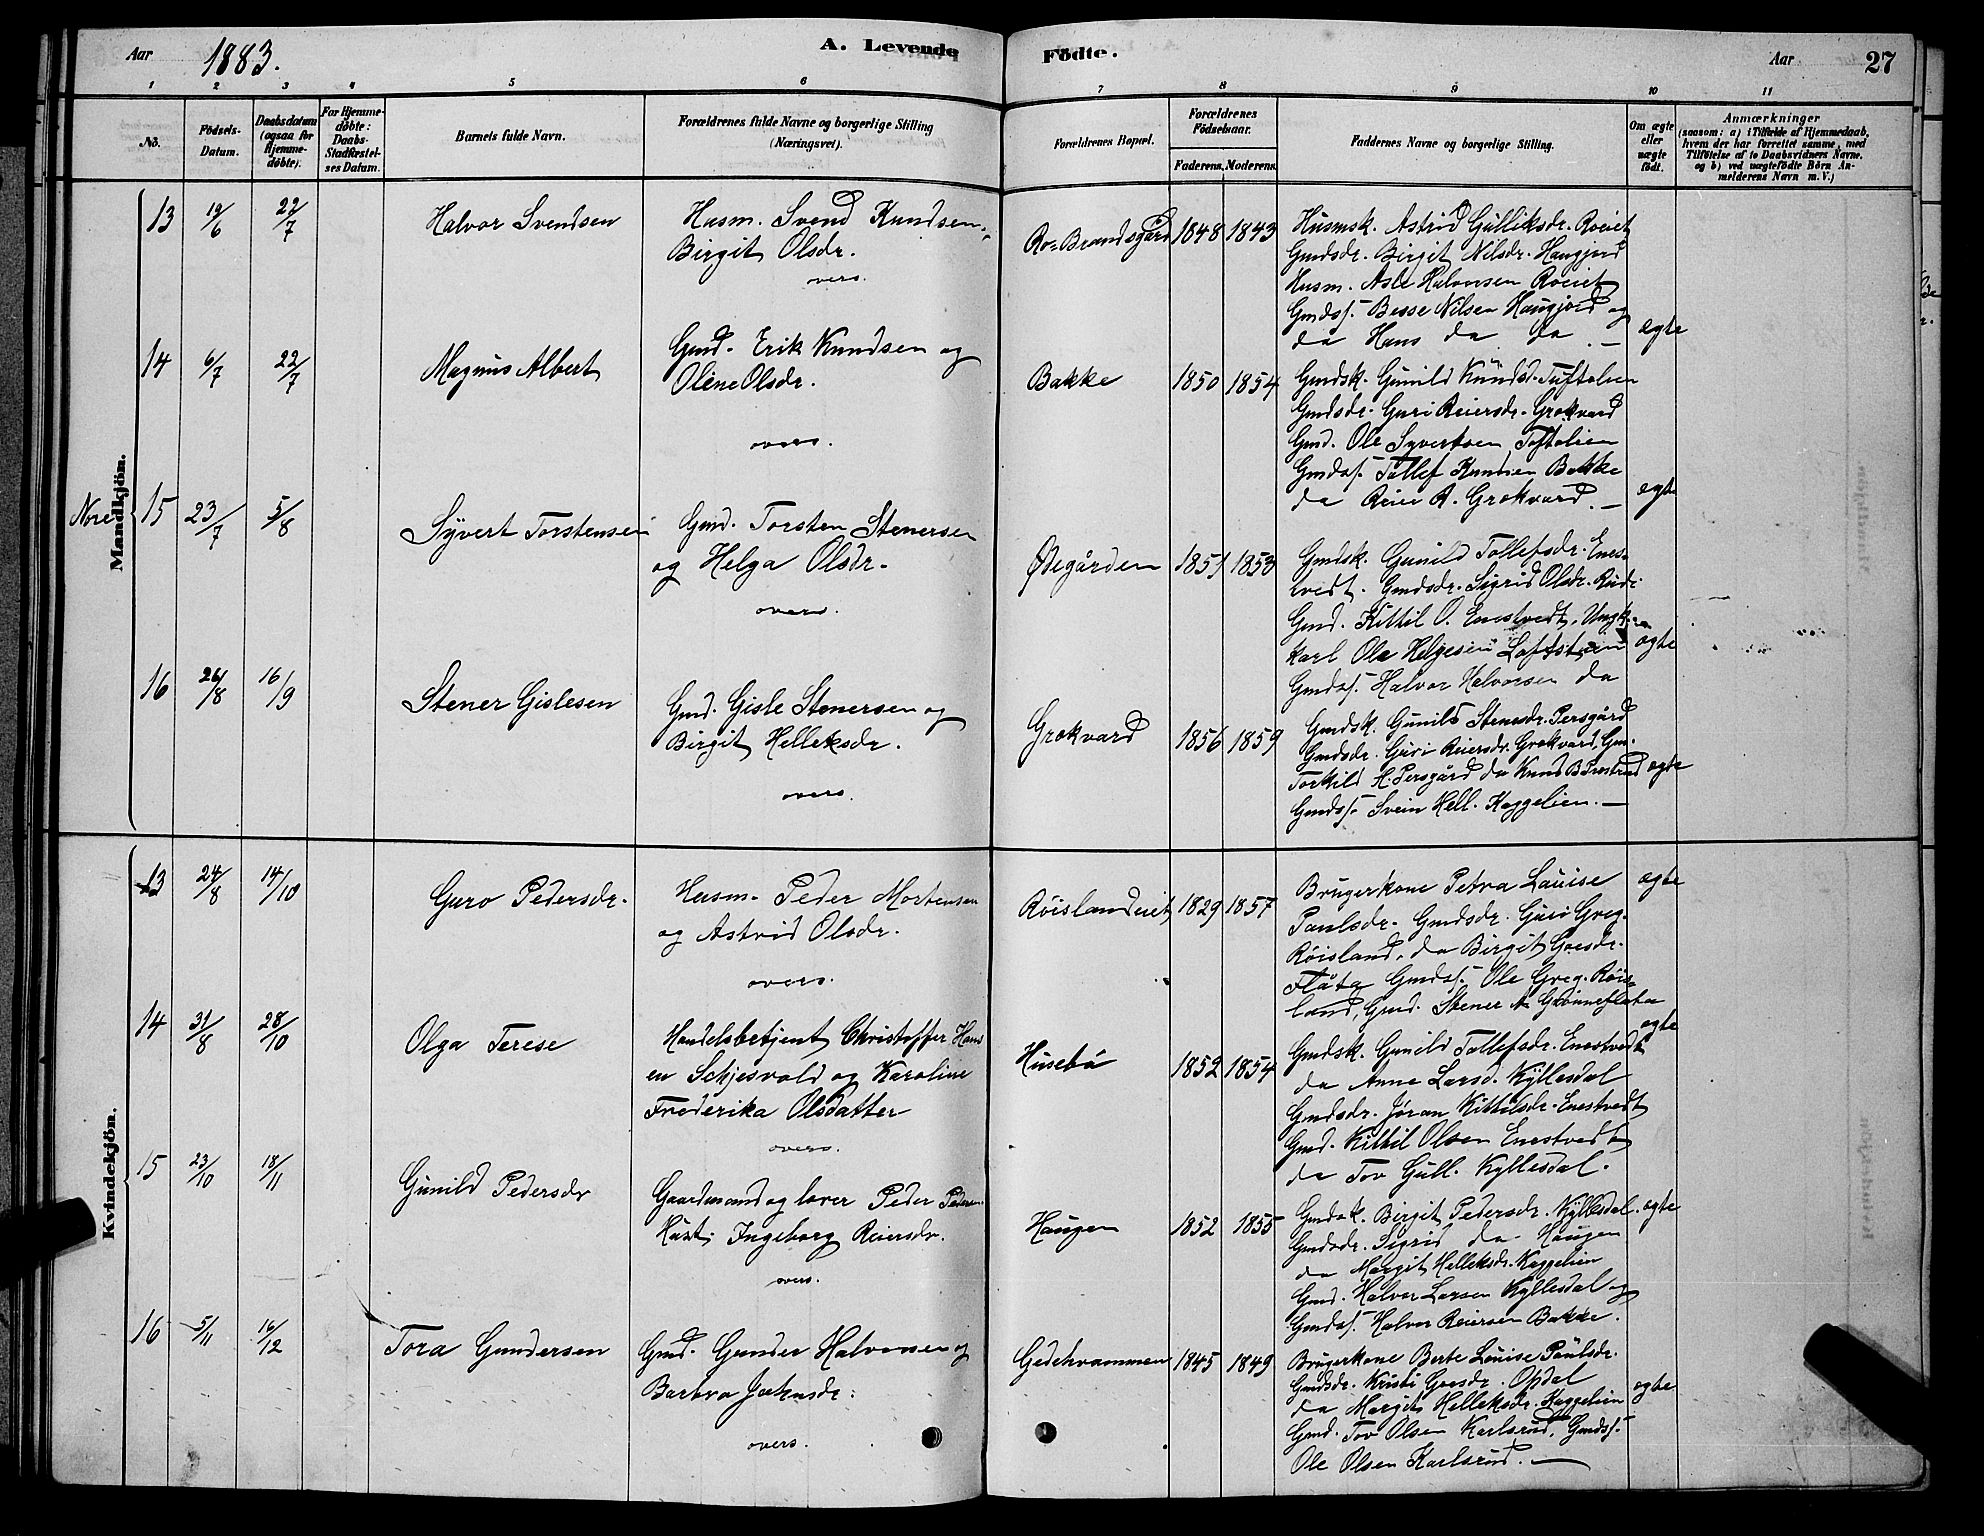 Aar 1883.
A. Levende Födte.
Aar 27
1 2 3 4 5 6 7 8 9 10 11
No.
Födsels-
Datum.
Daabsdatum
(ogsaa for
Hjemme-
döbte).
For Hjemme-
döbte:
Daabs-
Stadfæstel-
ses Datum.
Barnets fulde Navn.
Forældrenes fulde Navne og borgerlige Stilling
(Næringsvei).
Forældrenes Bopæl.
Forældrenes
Födselsaar.
Faderens. Moderens.
Faddernes Navne og borgerlige Stilling.
Om ægte
eller
uægte
födt.
Anmærkninger
(saasom: a) i Tilfælde af Hjemmedaab,
hvem der har forrettet samme, med
Tilföielse af to Daabsvidners Navne.
og b) ved uægtefödte Börn An-
melderens Navn m. V.)
Mandkjön.
Nore
13 19/6 22/7 Halvor Svendsen
Husm. Svend Knudsen
Birgit Olsdr.
overs.
Ro-Brandsgård 1848 1843
Husmsk. Astrid Gulliksdr. Roeiet
Gmdsdr. Birgit Nilsdr. Haugjord
Husm. Asle Halvorsen Roeiet
Gmdss. Besse Nilsen Haugjord og
da Hans da da . — ægte
14 6/7 22/7 Magnus Albert
Gmd. Erik Knudsen og
Oline Olsdr.
overs.
Bakke 1850 1854
Gmdsk. Gunild Knudsd. Tuftelien
Gmdsdr. Guri Reiersdr. Grokvard
Gmd. Ole Syvertsen Toftelien
Gmdss. Tollef Knudsen Bakke
da Reier R. Grokvard . — ægte
15 23/7 5/8 Syvert Torstensen
Gmd. Torsten Stenersen
og Helga Olsdr.
overs.
Ødegården 1851 1853
Gmdsk. Gunild Tollefsdr. Enes-
tvedt. Gmdsdr. Sigrid Olsdr. Rudi
Gmd. Kittil O. Enestvedt, Ungk-
karl Ole Helgesen Loftstuen ægte
Gmdss. Halvor Halvorsen da
16 26/8 16/9 Stener Gislesen
Gmd. Gisle Stenersen og
Birgit Helleksdr.
overs.
Grokvard 1856 1859
Gmdsk. Gunild Stenersdr. Persgård
Gmdsdr. Guri Reiersdr. Grokvard, Gm.
Torkild H. Persgård da Knud ægte
Gmdss. Svein Hell. Kaggelien. —
Kvindekjön.
13 24/8 14/10 Guro Pedersdr.
Husm. Peder Mortensen
og Astrid Olsdr.
overs.
Röislandeiet 1829 1857
Brugerkone Petra Lauise ægte
Paulsdr. Gmdsdr. Guri Greg.
Röisland, da Birgit Goesdr.
Flåta Gmdss. Ole Greg. Röis-
land, Gmd. Stener Grönneflata
14 31/8 28/10 Olga Terese
Handelsbetjent Christoffer Hans
en Schjesvold og Karoline
Frederika Olsdatter
overs.
Husebö 1852 1854 ægte
Gmdsk. Gunild Tollefsdr. Enestvedt
da Anne Larsd. Kyllesdal
Gmdsdr. Jøran Kittilsdr. Enestvedt
Gmd. Kittil Olsen Enestvedt
da Tov Gull. Kyllesdal.
15 23/10 18/11 Gunild Pedersdr
Gaardmand og lærer Peder Peders.
Ingeborg Reiersdr.
overs.
Haugen 1852 1855
Gmdsk. Birgit Pedersdr. Kyllesdal. ægte
Gmdsdr. Sigrid da Haugen
da Margit Helleksdr. Kaggelien
Gmd. Halvor Larsen Kyllesdal og
Gmdss. Halvor Reiersen Bakke.
16 5/11 16/12 Tora Gundersen
Gmd. Gunder Halvorsen og
Barbro Johnsdr.
overs.
Gedehvammen 1845 1849
Brugerkone Berte Louise Paulsdr.
Gmdsdr. Kristi Goesdr. Opdal
da Margit Helleksdr. Kaggelien ægte
Gmd. Tov Olsen Karlsrud, Gmdss.
Ole Olsen Karlsrud. —